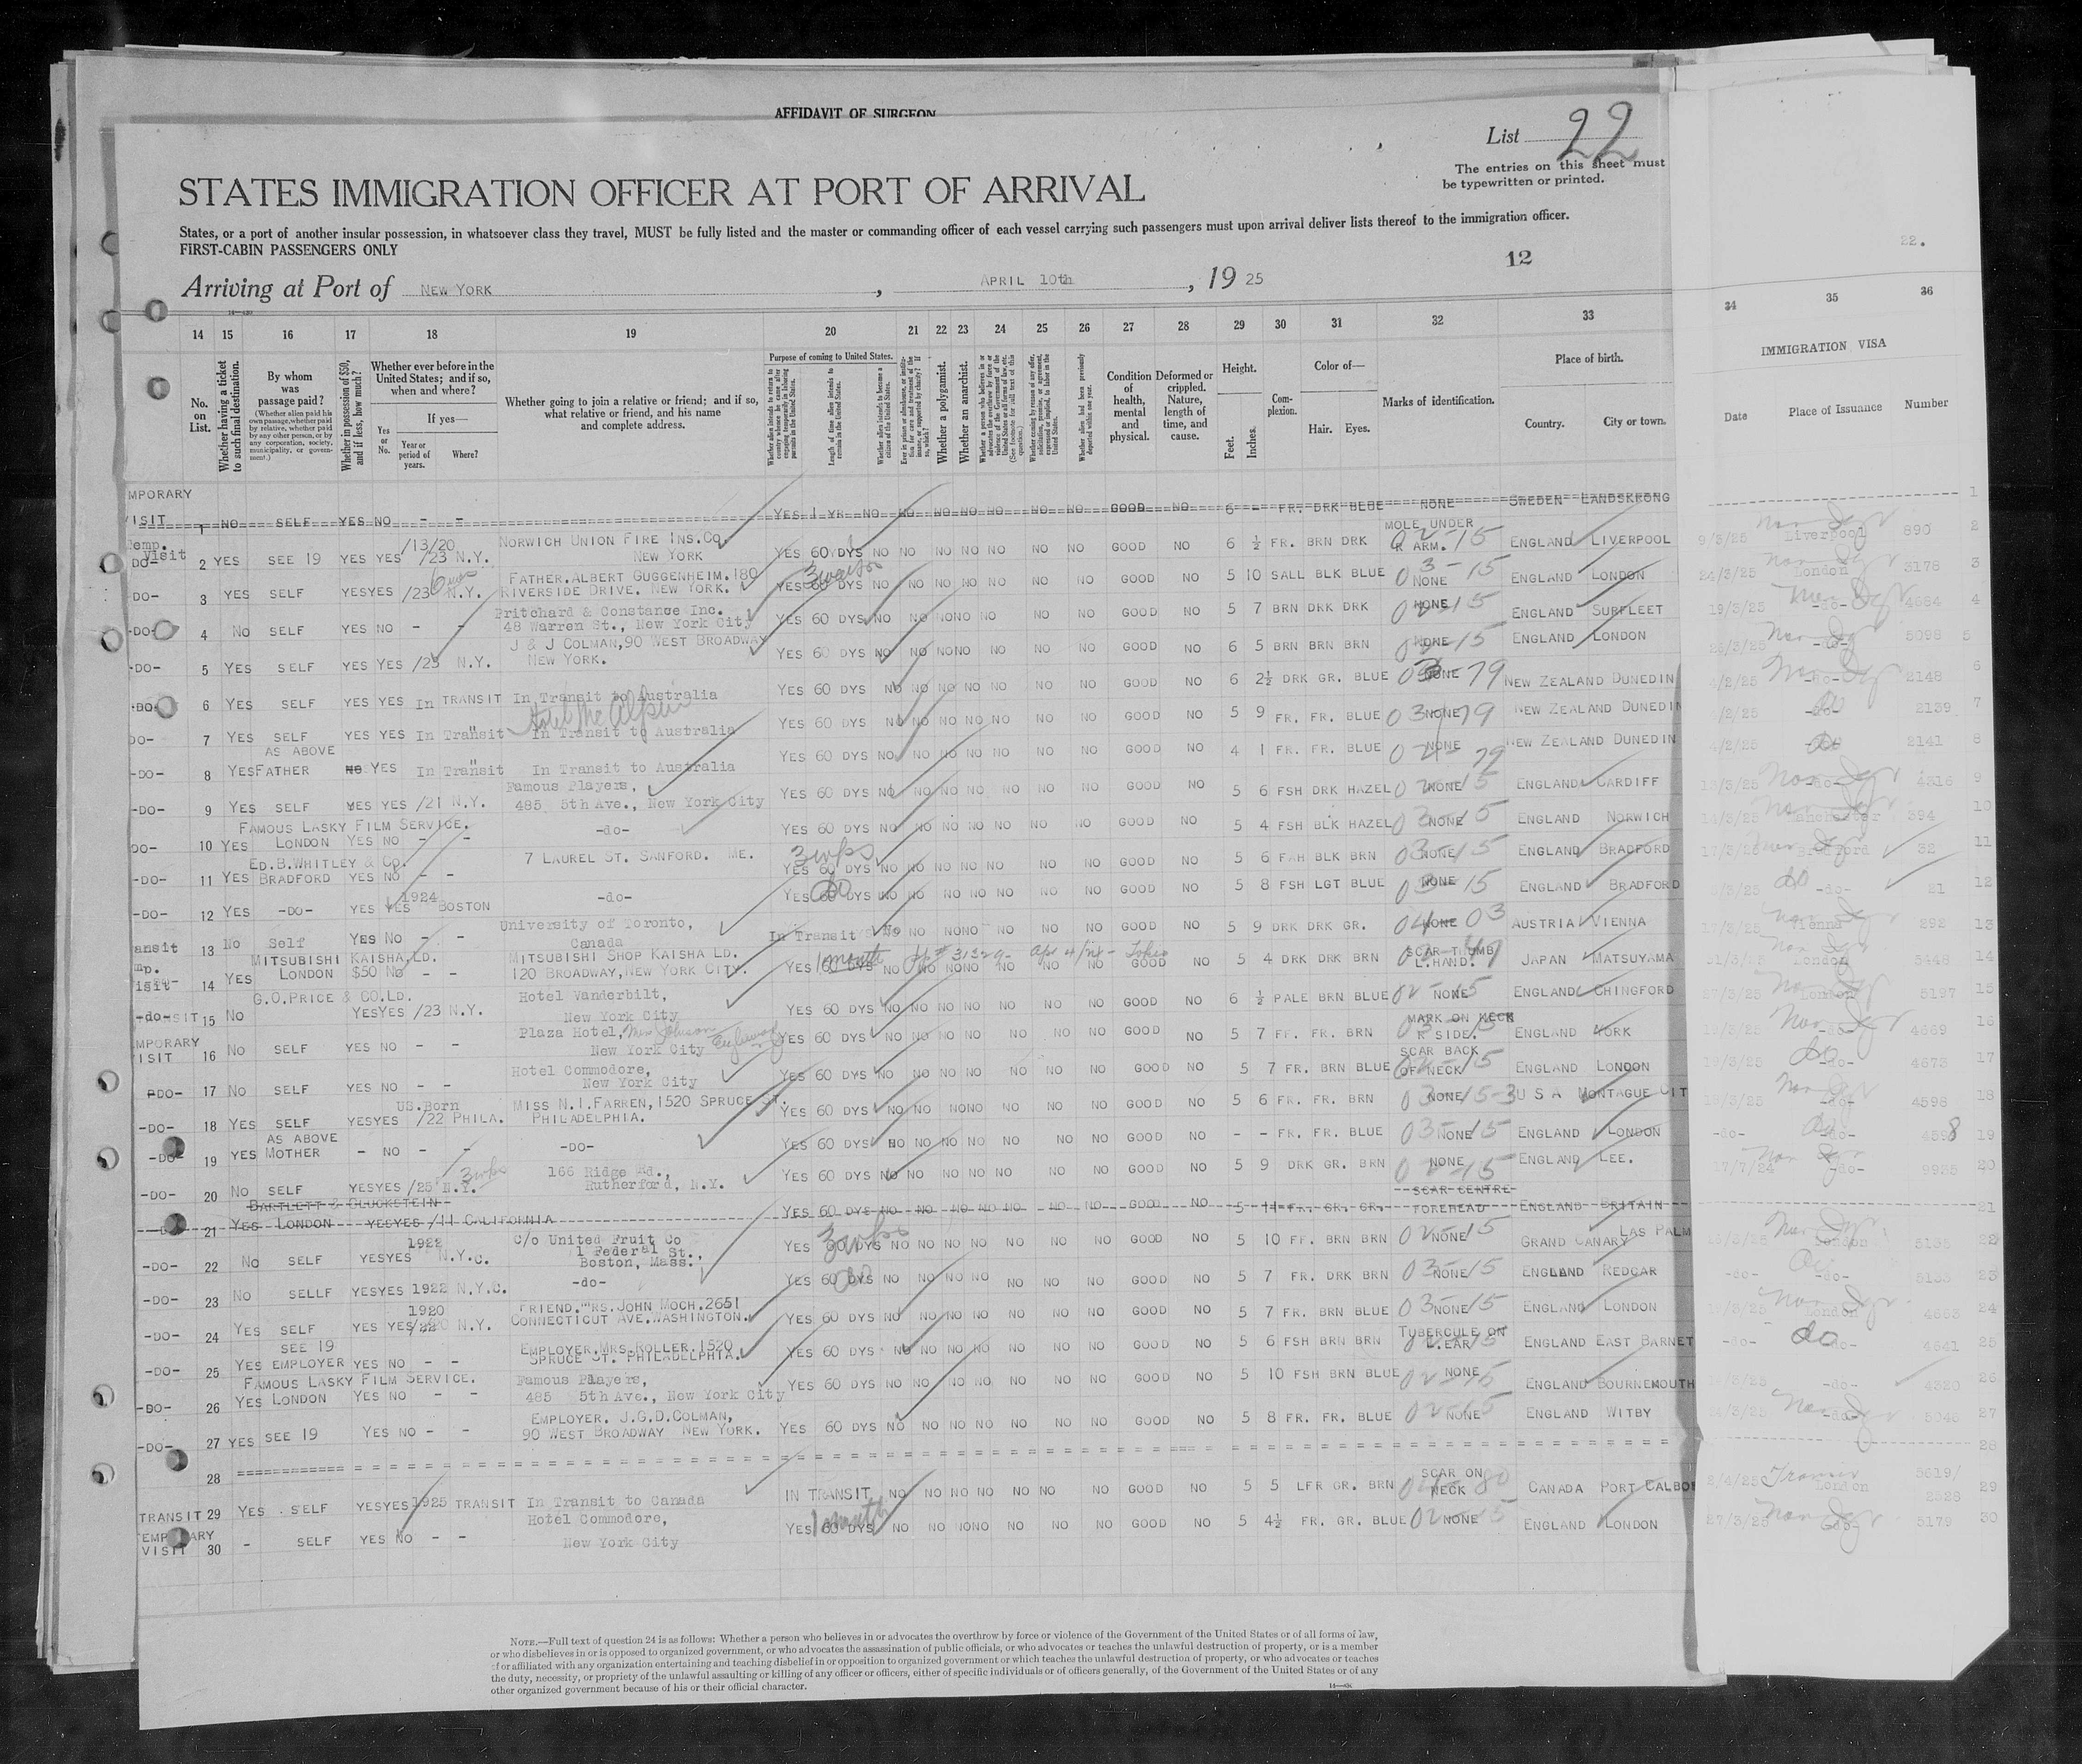 AFFIDAVIT OF SURGEON
List 22
The entries on this sheet must
be typewritten or printed.
STATES IMMIGRATION OFFICER AT PORT OF ARRIVAL
States, or a port of another insular possession, in whatsoever class they travel, MUST be fully listed and the master or commanding officer of each vessel carrying such passengers must upon arrival deliver lists thereof to the immigration officer.
FIRST-CABIN PASSENGERS ONLY
22.
12
Arriving at Port of NEW YORK , APRIL 10th , 19 25
14 15 16 17 18 19 20 21 22 23 24 25 26 27 28 29 30 31 32 33 34 35 36
No. on List.
Whether having a ticket to such final destination.
By whom was passage paid?
(Whether alien paid his own passage, whether paid by relative, whether paid by any other person, or by any corporation, society, municipality, or government.)
Whether in possession of $50, and if less, how much?
Whether ever before in the United States; and if so, when and where?
If yes—
Yes or No.
Year or period of years.
Where?
Whether going to join a relative or friend; and if so, what relative or friend, and his name and complete address.
Purpose of coming to United States.
Whether alien intends to return to country whence he came after engaging temporarily in laboring pursuits in the United States.
Length of time alien intends to remain in the United States.
Whether alien intends to become a citizen of the United States.
Ever in prison or almshouse, or institution for care and treatment of the insane, or supported by charity? If so, which?
Whether a polygamist.
Whether an anarchist.
Condition of health, mental and physical.
Deformed or crippled. Nature, length of time, and cause.
Height.
Feet. Inches.
Complexion.
Color of—
Hair. Eyes.
Marks of identification.
Place of birth.
Country. City or town.
IMMIGRATION VISA
Date Place of Issuance Number
MPORARY VISIT 1 NO SELF YES NO - - YES 1 YR NO NO NO NO NO NO NO GOOD NO 6 - FR. DRK BLUE NONE SWEDEN LANDSKRONG 1
Temp. visit
-DO- 2 YES SEE 19 YES YES /13/20 /23 N.Y. NORWICH UNION FIRE INS.CO. NEW YORK YES 60 DYS NO NO NO NO NO NO NO GOOD NO 6 ½ FR. BRN DRK MOLE UNDER R ARM. 02-15 ENGLAND LIVERPOOL 9/3/25 Liverpool 890 2
-DO- 3 YES SELF YES YES /23 N.Y. FATHER.ALBERT GUGGENHEIM.180 RIVERSIDE DRIVE. NEW YORK. YES 60 DYS NO NO NO NO NO NO NO GOOD NO 5 10 SALL BLK BLUE NONE 03-15 ENGLAND LONDON 24/3/25 London 3178 3
-DO- 4 No SELF YES NO - - Pritchard & Constance Inc. 48 Warren St., New York City YES 60 DYS NO NO NO NO NO NO NO GOOD NO 5 7 BRN DRK DRK NONE 02-15 ENGLAND SURFLEET 19/3/25 -do- 4684 4
-DO- 5 YES SELF YES YES /23 N.Y. J & J COLMAN,90 WEST BROADWAY NEW YORK. YES 60 DYS NO NO NO NO NO NO NO GOOD NO 6 5 BRN BRN BRN NONE ENGLAND LONDON -do- 5098 5
-DO- 6 YES SELF YES YES In TRANSIT In Transit to Australia YES 60 DYS NO NO NO NO NO NO NO GOOD NO 6 2½ DRK GR. BLUE NONE 79 NEW ZEALAND DUNEDIN 4/2/25 -do- 2148 6
Hotel McAlpin
DO- 7 YES SELF YES YES In Transit In Transit to Australia YES 60 DYS NO NO NO NO NO NO NO GOOD NO 5 9 FR. FR. BLUE NONE 79 NEW ZEALAND DUNEDIN /2/25 -do- 2139 7
-DO- 8 YES AS ABOVE FATHER YES In Transit In Transit to Australia YES 60 DYS NO NO NO NO NO NO NO GOOD NO 4 1 FR. FR. BLUE NONE 79 NEW ZEALAND DUNEDIN 4/2/25 do 2141 8
-DO- 9 YES SELF YES YES /21 N.Y. Famous Players, 485 5th Ave., New York City YES 60 DYS NO NO NO NO NO NO NO GOOD NO 5 6 FSH DRK HAZEL NONE ENGLAND CARDIFF 13/3/25 -do- 4316 9
DO- 10 YES FAMOUS LASKY FILM SERVICE. LONDON YES NO - - -do- YES 60 DYS NO NO NO NO NO NO NO GOOD NO 5 4 FSH BLK HAZEL NONE ENGLAND NORWICH 14/3/25 Manchester 394 10
-DO- 11 YES ED.B.WHITLEY & CO. BRADFORD YES NO - - 7 LAUREL ST. SANFORD. ME. 3 wks YES 60 DYS NO NO NO NO NO NO NO GOOD NO 5 6 FAH BLK BRN NONE 03-15 ENGLAND BRADFORD 17/3/25 Bradford 32 11
-DO- 12 YES -DO- YES YES 1924 BOSTON -do- YES do DYS NO NO NO NO NO NO NO GOOD NO 5 8 FSH LGT BLUE NONE 03-15 ENGLAND BRADFORD do -do- 21 12
ansit 13 No Self Yes No - - University of Toronto, Canada In Transit NO NO NO NO NO NO NO GOOD NO 5 9 DRK DRK GR. NONE 04 03 AUSTRIA VIENNA 17/3/25 Vienna 292 13
mp. isit 14 YES MITSUBISHI KAISHA,LD. LONDON $50 NO - - MITSUBISHI SHOP KAISHA LD. 120 BROADWAY,NEW YORK CITY. YES 1 month 60 DYS NO NO NO NO NO NO NO GOOD NO 5 4 DRK DRK BRN SCAR THUMB L.HAND. JAPAN MATSUYAMA London 5448 14
-do- 15 No G.O.PRICE & CO.LD. YES YES /23 N.Y. Hotel Vanderbilt, New York City YES 60 DYS NO NO NO NO NO NO NO GOOD NO 6 ½ PALE BRN BLUE NONE 02-15 ENGLAND CHINGFORD 27/3/25 London 5197 15
MPORARY VISIT 16 No SELF YES NO - - Plaza Hotel, New York City YES 60 DYS NO NO NO NO NO NO NO GOOD NO 5 7 FF. FR. BRN MARK ON NECK R SIDE. ENGLAND YORK -do- 4669 16
-DO- 17 No SELF YES NO - - Hotel Commodore, New York City YES 60 DYS NO NO NO NO NO NO NO GOOD NO 5 7 FR. BRN BLUE SCAR BACK OF NECK 02-15 ENGLAND LONDON 19/3/25 -do- 4673 17
-DO- 18 YES SELF YES YES US.Born /22 PHILA. MISS N.I.FARREN,1520 SPRUCE ST. PHILADELPHIA. YES 60 DYS NO NO NO NO NO NO NO GOOD NO 5 6 FR. FR. BRN NONE U S A MONTAGUE CIT -do- 4598 18
-DO- 19 YES AS ABOVE MOTHER - NO - - -DO- YES 60 DYS NO NO NO NO NO NO NO GOOD NO - - FR. FR. BLUE NONE 15 ENGLAND LONDON -do- -do- 4598 19
-DO- 20 No SELF YES YES /25 N.Y. 3 wks 166 Ridge Rd., Rutherford, N.Y. YES 60 DYS NO NO NO NO NO NO NO GOOD NO 5 9 DRK GR. BRN NONE 02-15 ENGLAND LEE. 17/7/24 -do- 9935 20
21 YES BARTLETT & GLUCKSTEIN LONDON YES YES /11 CALIFORNIA YES 60 DYS NO NO NO NO NO NO NO GOOD NO 5 11 FR. GR. GR. SCAR CENTRE FOREHEAD ENGLAND BRITAIN 21
-DO- 22 No SELF YES YES 1922 N.Y.C. c/o United Fruit Co 1 Federal St., Boston, Mass. 3 wks YES 60 DYS NO NO NO NO NO NO NO GOOD NO 5 10 FF. BRN BRN NONE 02 15 GRAND CANARY LAS PALM London 5135 22
-DO- 23 No SELLF YES YES 1922 N.Y.C. -do- YES 60 DYS NO NO NO NO NO NO NO GOOD NO 5 7 FR. DRK BRN NONE 03-15 ENGLAND REDCAR -do- -do- 5133 23
-DO- 24 YES SELF YES YES 1920 /22 N.Y. FRIEND.MRS.JOHN MOCH.2651 CONNECTICUT AVE.WASHINGTON. YES 60 DYS NO NO NO NO NO NO NO GOOD NO 5 7 FR. BRN BRN NONE 03-15 ENGLAND LONDON London 4663 24
-DO- 25 YES SEE 19 EMPLOYER YES NO - - EMPLOYER.MRS.ROLLER.1520 SPRUCE ST. PHILADELPHIA. YES 60 DYS NO NO NO NO NO NO NO GOOD NO 5 6 FSH BRN BRN TUBERCULE ON L.EAR ENGLAND EAST BARNET -do- do 4641 25
-DO- 26 YES FAMOUS LASKY FILM SERVICE. LONDON YES NO - - Famous Players, 485 5th Ave., New York City YES 60 DYS NO NO NO NO NO NO NO GOOD NO 5 10 FSH BRN BLUE NONE 02-15 ENGLAND BOURNEMOUTH -do- 4320 26
-DO- 27 YES SEE 19 YES NO - - EMPLOYER. J.G.D.COLMAN, 90 WEST BROADWAY NEW YORK. YES 60 DYS NO NO NO NO NO NO NO GOOD NO 5 8 FR. FR. BLUE NONE 02-15 ENGLAND WITBY -do- 5045 27
28 28
TRANSIT 29 YES SELF YES YES 1925 TRANSIT In Transit to Canada IN TRANSIT NO NO NO NO NO NO NO GOOD NO 5 5 LFR GR. BRN SCAR ON NECK CANADA PORT CALBO 2/4/25 London 5619/ 2528 29
TEMPORARY VISIT 30 - SELF YES NO - - Hotel Commodore, New York City YES 1 month 60 DYS NO NO NO NO NO NO NO GOOD NO 5 4½ FR. GR. BLUE NONE 02-15 ENGLAND LONDON 27/3/25 -do- 5179 30
NOTE.—Full text of question 24 is as follows: Whether a person who believes in or advocates the overthrow by force or violence of the Government of the United States or of all forms of law,
or who disbelieves in or is opposed to organized government, or who advocates the assassination of public officials, or who advocates or teaches the unlawful destruction of property, or is a member
of or affiliated with any organization entertaining and teaching disbelief in or opposition to organized government or which teaches the unlawful destruction of property, or who advocates or teaches
the duty, necessity, or propriety of the unlawful assaulting or killing of any officer or officers, either of specific individuals or of officers generally, of the Government of the United States or of any
other organized government because of his or their official character.